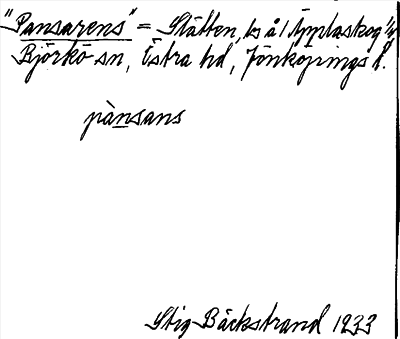 "Pansarens" = Slätten, ls å/ Äpplaskog 1/4
Björkö sn, Östra hd, Jönköpings l.
pànsans
Stig Bäckstrand 1933